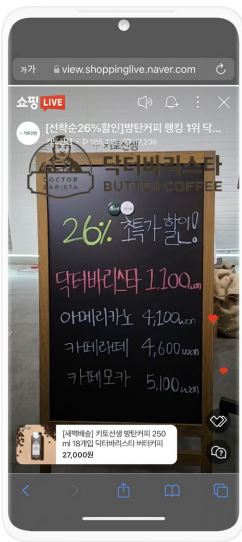 가가 view.shoppinglive.naver.com
쇼핑 LIVE
[선착순26%할인]방탄커피 랭킹 1위 닥...
키토선생
DOCTOR BARISTA
닥터바리스타
BUTTER COFFEE
26% 특가 할인!
닥터바리스타 1,100won
아메리카노 4,100won
카페라떼 4,600won
카페모카 5,100won
[새벽배송] 키토선생 방탄커피 250
ml 18개입 닥터바리스타 버터커피
27,000원